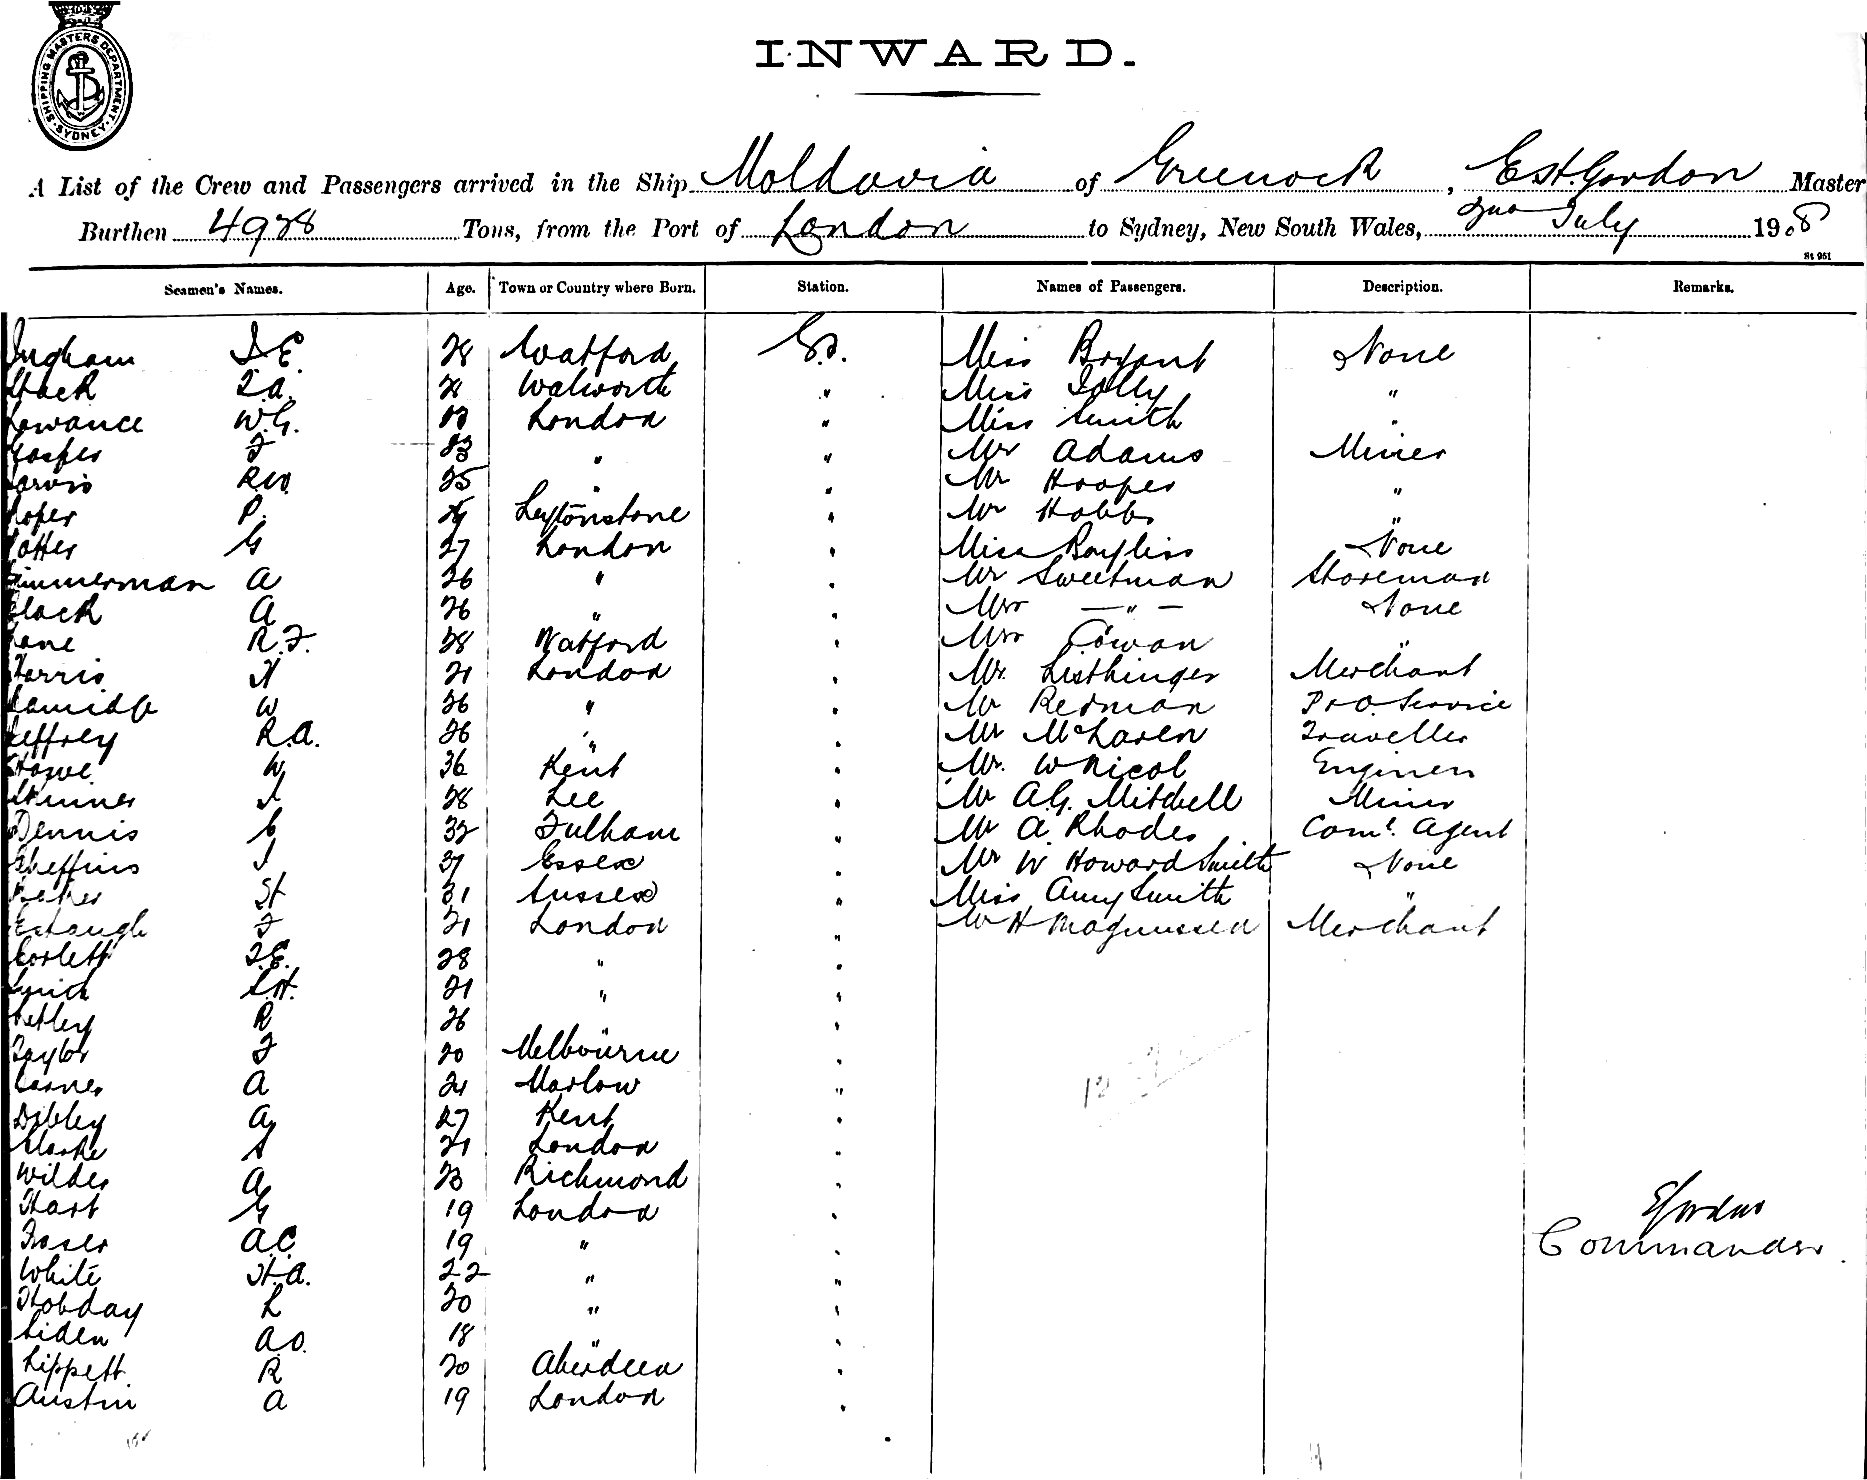 SHIPPING MASTERS DEPARTMENT
SYDNEY
INWARD.
A List of the Crew and Passengers arrived in the Ship Moldavia of Greenock, E St. Gordon Master
Burthen 4928 Tons, from the Port of London to Sydney, New South Wales, 2nd July 1908
St 951
Seamen's Names. Age. Town or Country where Born. Station. Names of Passengers. Description. Remarks.
Ingham 28 Watford G.S. Miss Bryant None
Stack 21 Walworth " Miss Jolly "
Lowance W.G. London " Miss Smith "
23 " " Mr Adams Miner
Jarvis R.W. 25 " " Mr Hooper "
Roper P. Leytonstone " Mr Hobbs "
Potter G 27 London " Miss Bayliss None
Zimmerman A 26 " " Mr Sweetman Storeman
A 26 " " Mrs — " — None
Lane R.F. 28 Watford " Mrs Cowan "
Harris H 21 London " Mr. Merchant
W 26 " " Mr Redman P & O. Service
Jeffrey R.A. 26 " " Mr McLaren Traveller
Howe W 36 Kent " Mr. W Nicol Engineer
Skinner 28 Lee " Mr A.G. Mitchell Miner
Dennis C 32 Fulham " Mr A. Rhodes Coml. Agent
Sheffins Essex " Mr W Howard Smith None
H 31 Sussex " Miss Amy Smith "
F 21 London " Mr H Magnussen Merchant
Corlett F.E. 28 " "
S.H. 21 " "
R 26 " "
Taylor F 20 Melbourne "
A 21 Marlow "
Dibley A 27 Kent "
Clarke S 21 London "
Wilder A 23 Richmond "
Hart G 19 London "
E Gordon
Fraser A.C. 19 " "
Commander.
White H.A. 22 " "
Hobday L 20 " "
Liden A.O. 18 " "
Lippett R 20 Aberdeen "
Austin A 19 London "